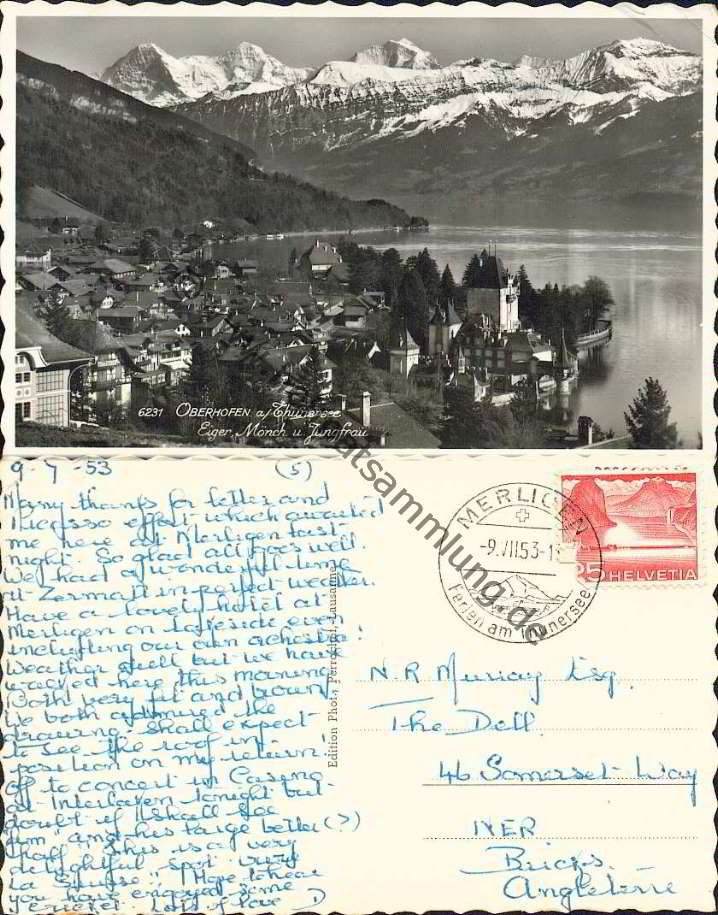 6231 OBERHOFEN a/Thunersee
Eiger, Mönch u. Jungfrau
9-7-53 (5)
Many thanks for letter and
Picasso effort which awaited
me here at Merligen last
night. So glad all goes well.
We had a wonderful time
at Zermatt in perfect weather.
Have a lovely hotel at
Merligen on lakeside even
including our own orchestra!
Weather dull but we have
walked here this morning
Both very fit and brown
We both admired the
drawing. Shall expect
to see the roof in
position on my return!
Off to concert in Casino
at Interlaken tonight but
doubt if I shall see
"Jim" and his large better (?)
half! This is a very
delightful spot. Vive
La Suisse!! Hope to hear
you have enjoyed some
cricket. Lots of love D
Edition Photo Perrochet, Lausanne
MERLIGEN
-9.VII.53-1
Ferien am Thunersee
25 HELVETIA
N.R. Murray Esq.
The Dell
46 Somerset Way
IVER
Bucks.
Angleterre
sammlung.de